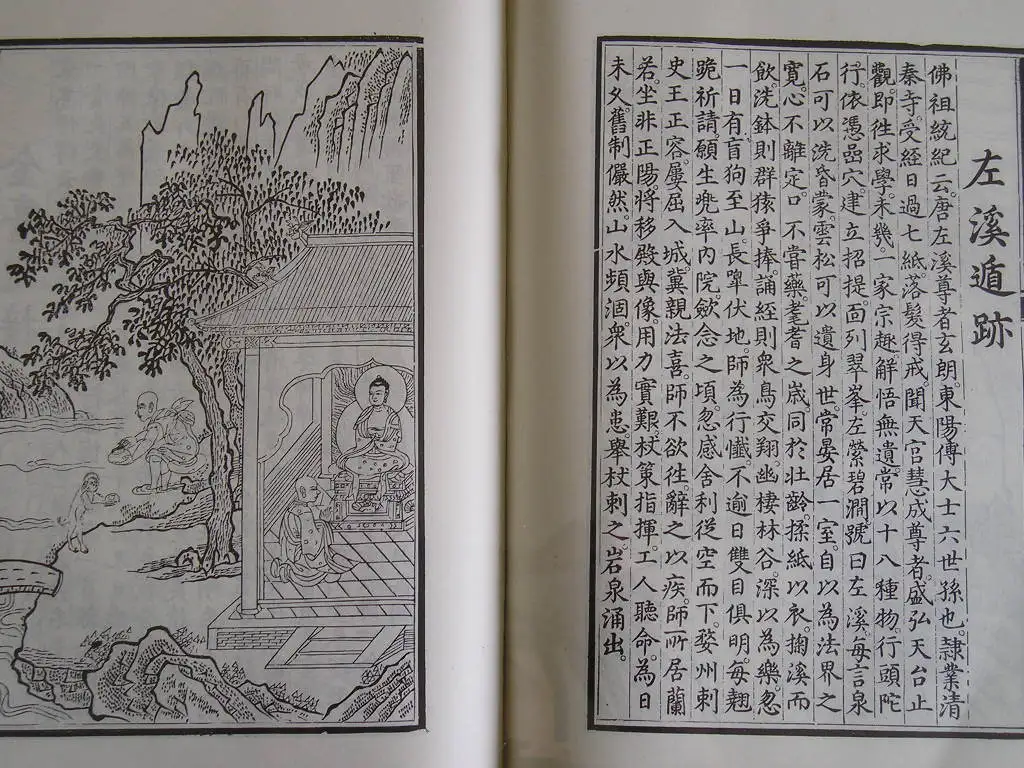 左溪遁跡
佛祖統紀云。唐左溪尊者玄朗。東陽傅大士六世孫也。隷業清
泰寺。受經日過七紙。落髮得戒。聞天官慧威尊者。盛弘天台止
觀。即徃求學。未幾一家宗趣。解悟無遺。常以十八種物。行頭陀
行。依憑嵒穴。建立招提。面列翠峯。左縈碧澗。號曰左溪。每言泉
石可以洗昏蒙。雲松可以遺身世。常晏居一室。自以為法界之
寬。心不離定。口不嘗藥。耄耆之歲。同於壯齡。揉紙以衣。掬溪而
飲。洗鉢則群猿爭捧。誦經則衆鳥交翔。幽棲林谷。深以為樂。忽
一日有盲狗至山。長嘷伏地。師為行懺。不逾日雙目俱明。每翹
晩祈請。願生兠率內院。歛念之頃。忽感舍利從空而下。婺州刺
史王正容。屢屈入城。冀親法喜。師不欲徃。辭之以疾。師所居蘭
若。坐非正陽。將移殿與像。用力實艱。杖策指揮。工人聽命。為日
未久。舊制儼然。山水頻涸。衆以為患。舉杖刺之。岩泉涌出。